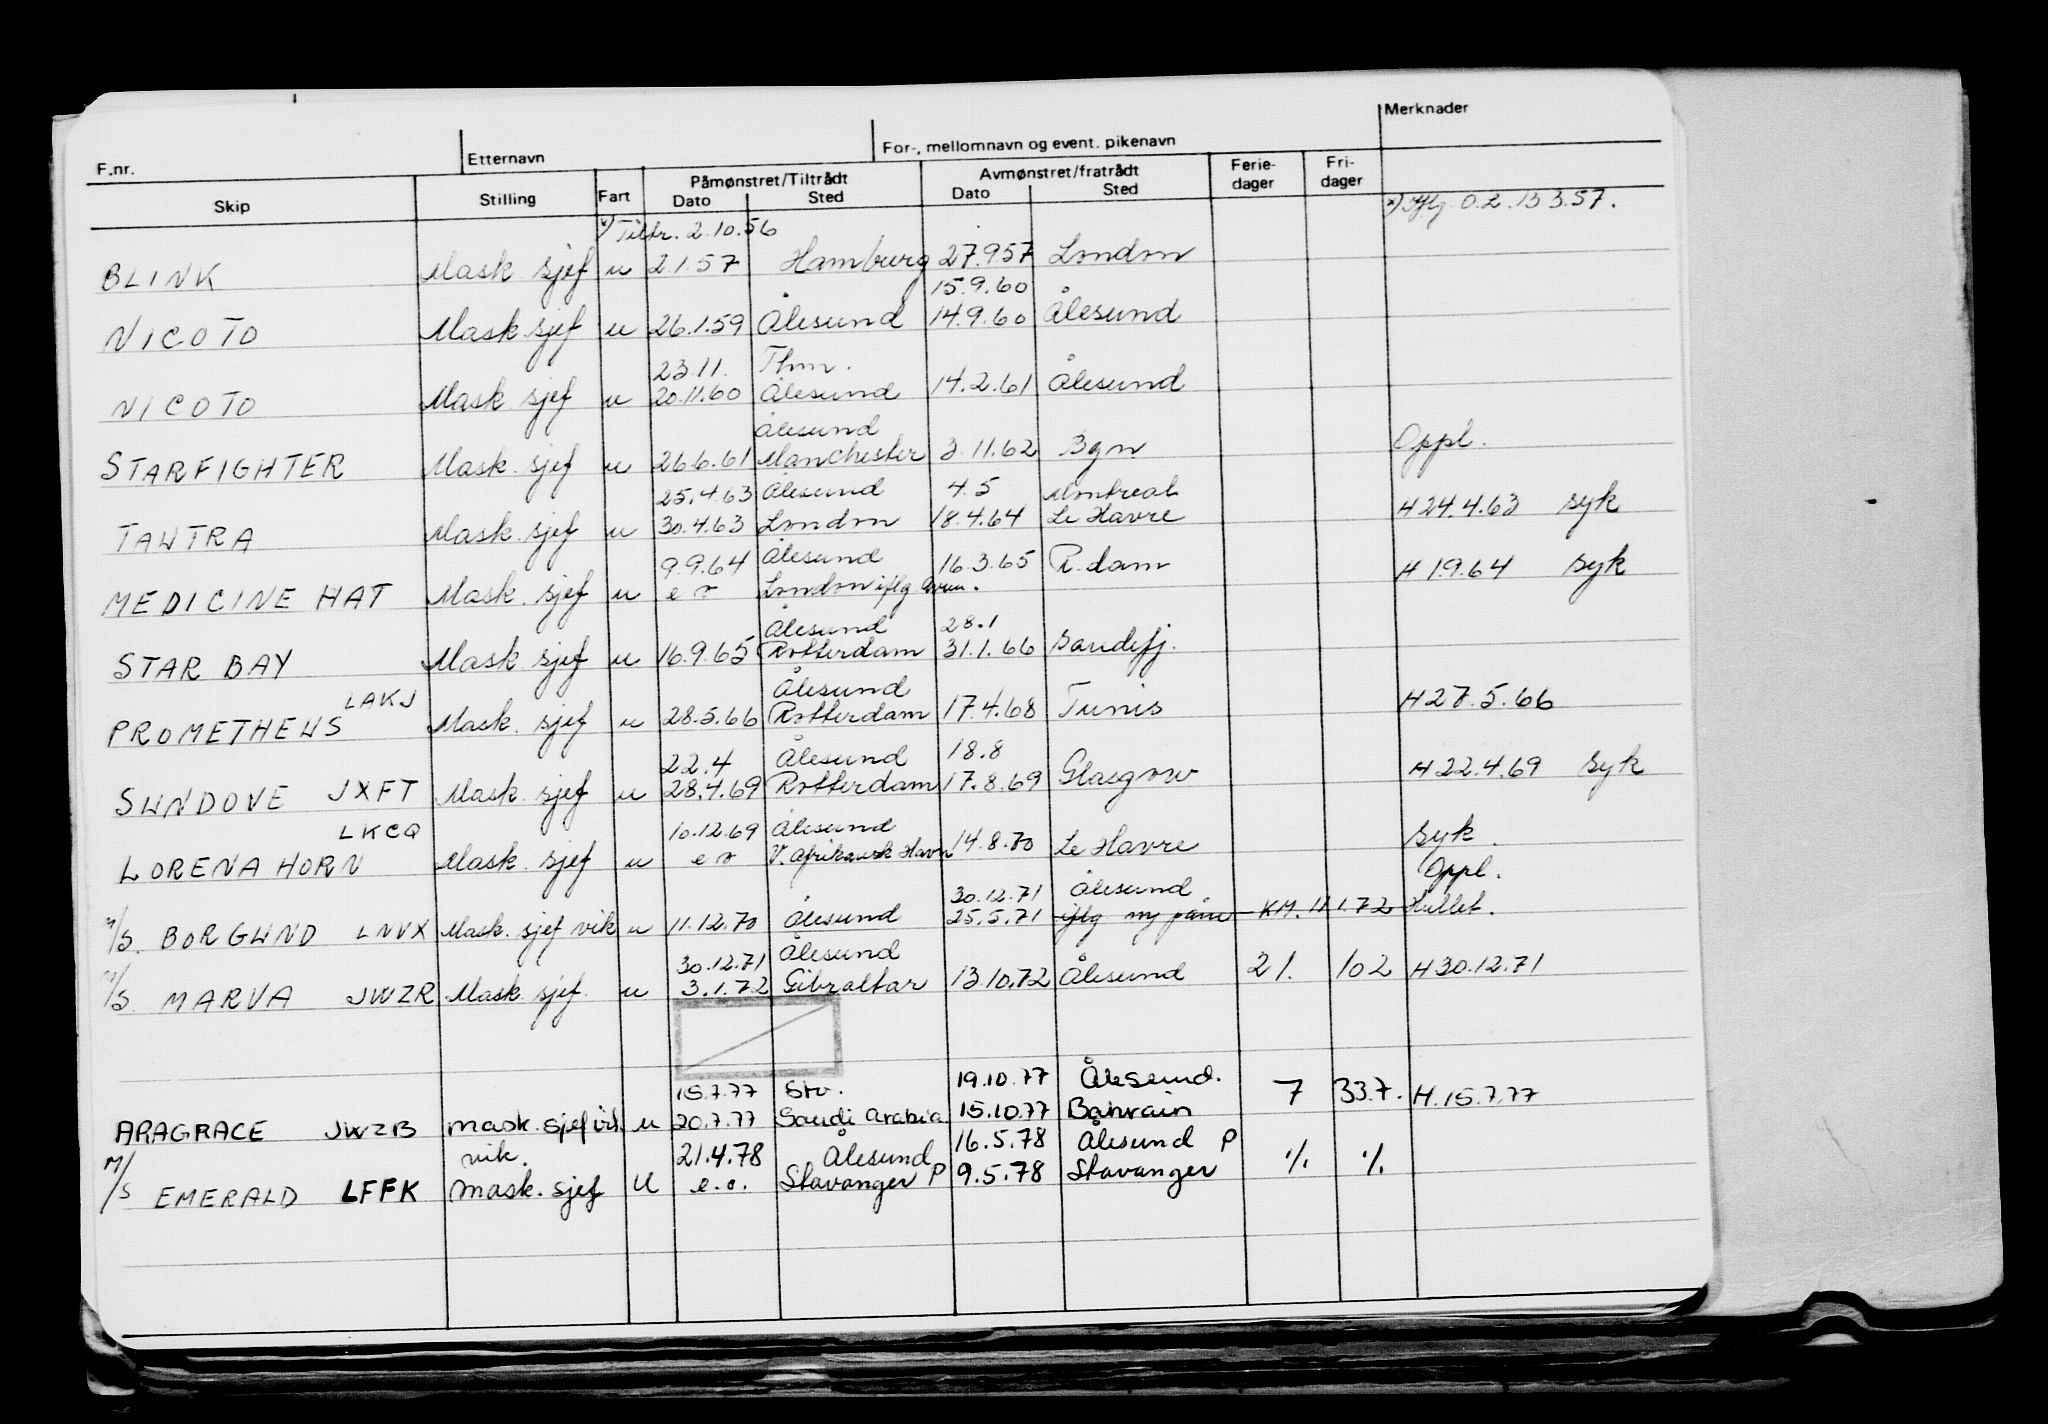 Merknader
F.nr. Etternavn For-, mellomnavn og event. pikenavn
Skip Stilling Fart Påmønstret/Tiltrådt Dato Sted Avmønstret/fratrådt Dato Sted Ferie-dager Fri-dager
x) Tiltr. 2.10.56 x) 0.2.13 3.57.
BLINK Mask. sjef u 2.1.57 Hamburg 27.957 London
15.9.60
NICOTO Mask sjef u 26.1.59 Ålesund 14.9.60 Ålesund
23.11. Thm.
NICOTO Mask sjef u 20.11.60 Ålesund 14.2.61 Ålesund
Ålesund Oppl.
STARFIGHTER Mask. sjef u 26.6.61 Manchester 3.11.62 Bgn
25.4.63 Ålesund 4.5 Montreal
TAUTRA Mask. sjef u 30.4.63 London 18.4.64 Le Havre H 24.4.63 syk
9.9.64 Ålesund 16.3.65 R.dam H 1.9.64 syk
MEDICINE HAT Mask. sjef u London iflg
Ålesund 28.1
STAR BAY Mask sjef u 16.9.65 Rotterdam 31.1.66 Sandefj.
LAKJ Ålesund
PROMETHEUS Mask. sjef u 28.5.66 Rotterdam 17.4.68 Tunis H 27.5.66
22.4 Ålesund 18.8
SUNDOVE JXFT Mask. sjef u 28.4.69 Rotterdam 17.8.69 Glasgow H 22.4.69 syk
LKCQ 10.12.69 Ålesund syk.
LORENA HORN Mask. sjef u V. afrikansk Havn 14.8.70 Le Havre Oppl.
30.12.71 Ålesund
M/S. BORGUND LNVX Mask. sjef vik u 11.12.70 Ålesund 25.5.71 iflg ny påm KM. 11.1.72 Hullet.
30.12.71 Ålesund
M/S. MARVA JWZR Mask. sjef. u 3.1.72 Gibraltar 13.10.72 Ålesund 21. 102 H 30.12.71
15.7.77 Stv. 19.10.77 Ålesund. 7 337. H. 15.7.77
ARAGRACE JWZB mask. sjef vik. u 20.7.77 Saudi Arabia 15.10.77 Bahrain
vik. 21.4.78 Ålesund 16.5.78 Ålesund P
M/S EMERALD LFFK Mask. sjef u e.o. Stavanger P 9.5.78 Stavanger ./. ./.